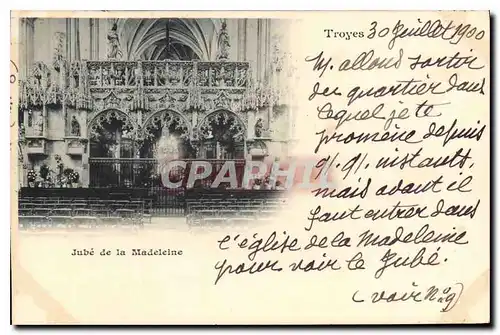 Troyes 30 Juillet 1900
N. allons sortir
du quartier dans
lequel je te
promène depuis
q.q. instants,
mais avant il
faut entrer dans
l'église de la Madeleine
pour voir le Jubé.
(voir N° 9)
Jubé de la Madeleine
CPARAMA